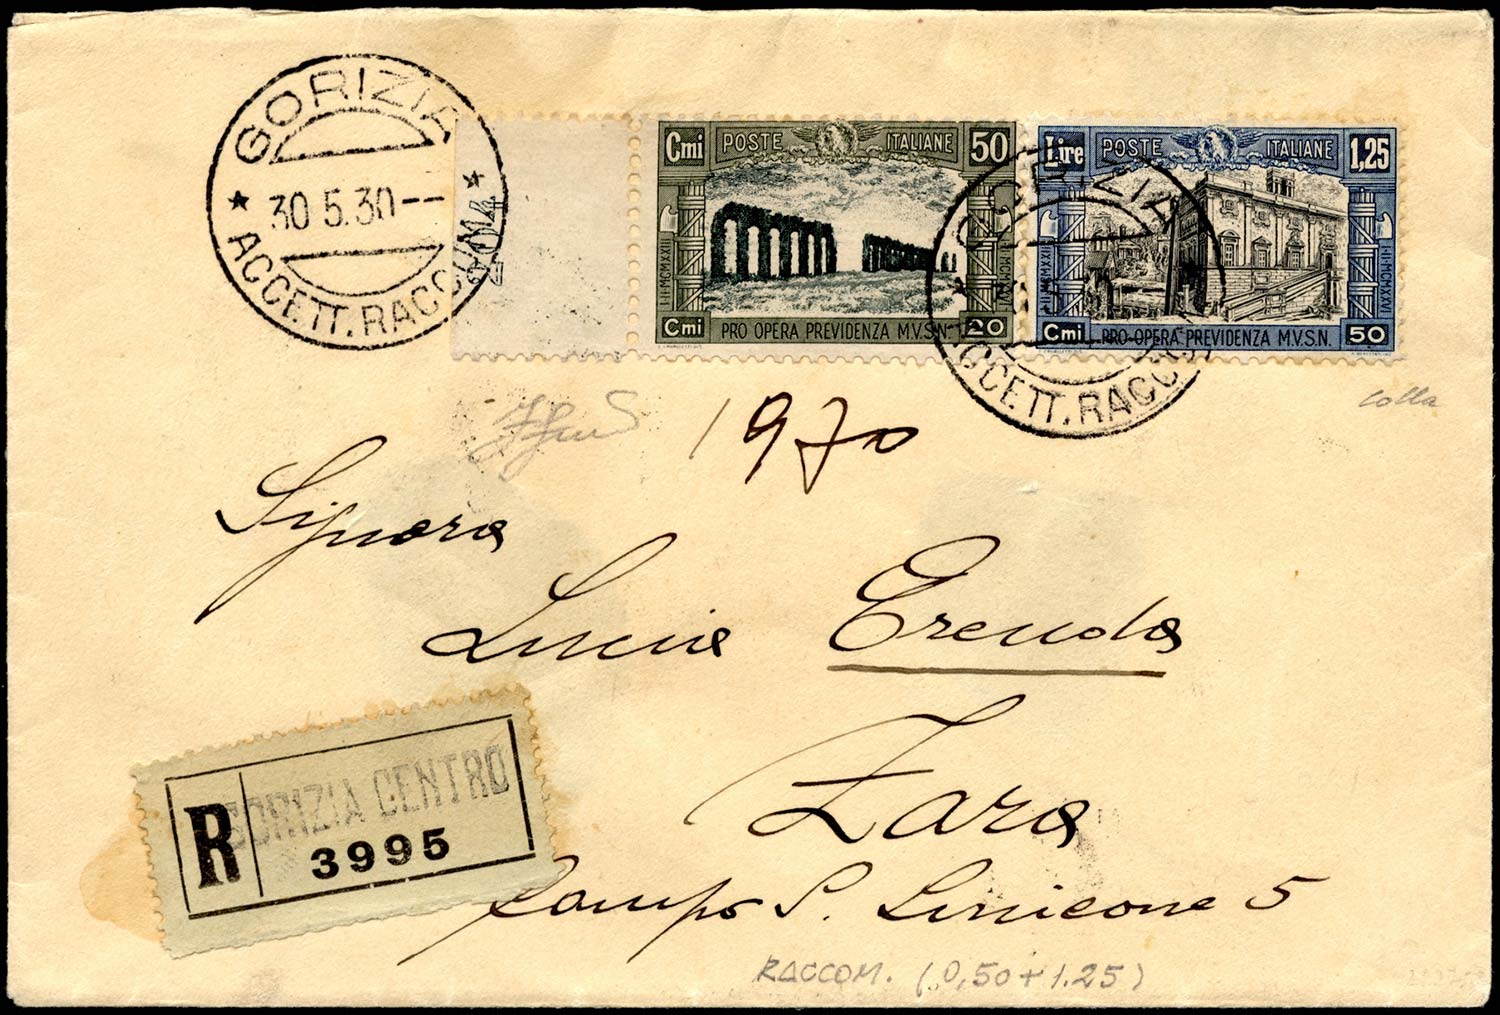 GORIZIA
30.5.30--
ACCETT. RACCOM.
Cmi POSTE ITALIANE 50
I·II·MCMXXIII
Cmi PRO OPERA PREVIDENZA M.V.S.N. 20
Lire POSTE ITALIANE 1,25
I·II·MCMXXIII
I·II·MCMXXVI
Cmi PRO OPERA PREVIDENZA M.V.S.N. 50
ACCETT. RACCOM.
colla
1970
Signora
Lucia
Zara
Campo S. Simeone 5
R GORIZIA CENTRO
3995
RACCOM. (0,50+1.25)